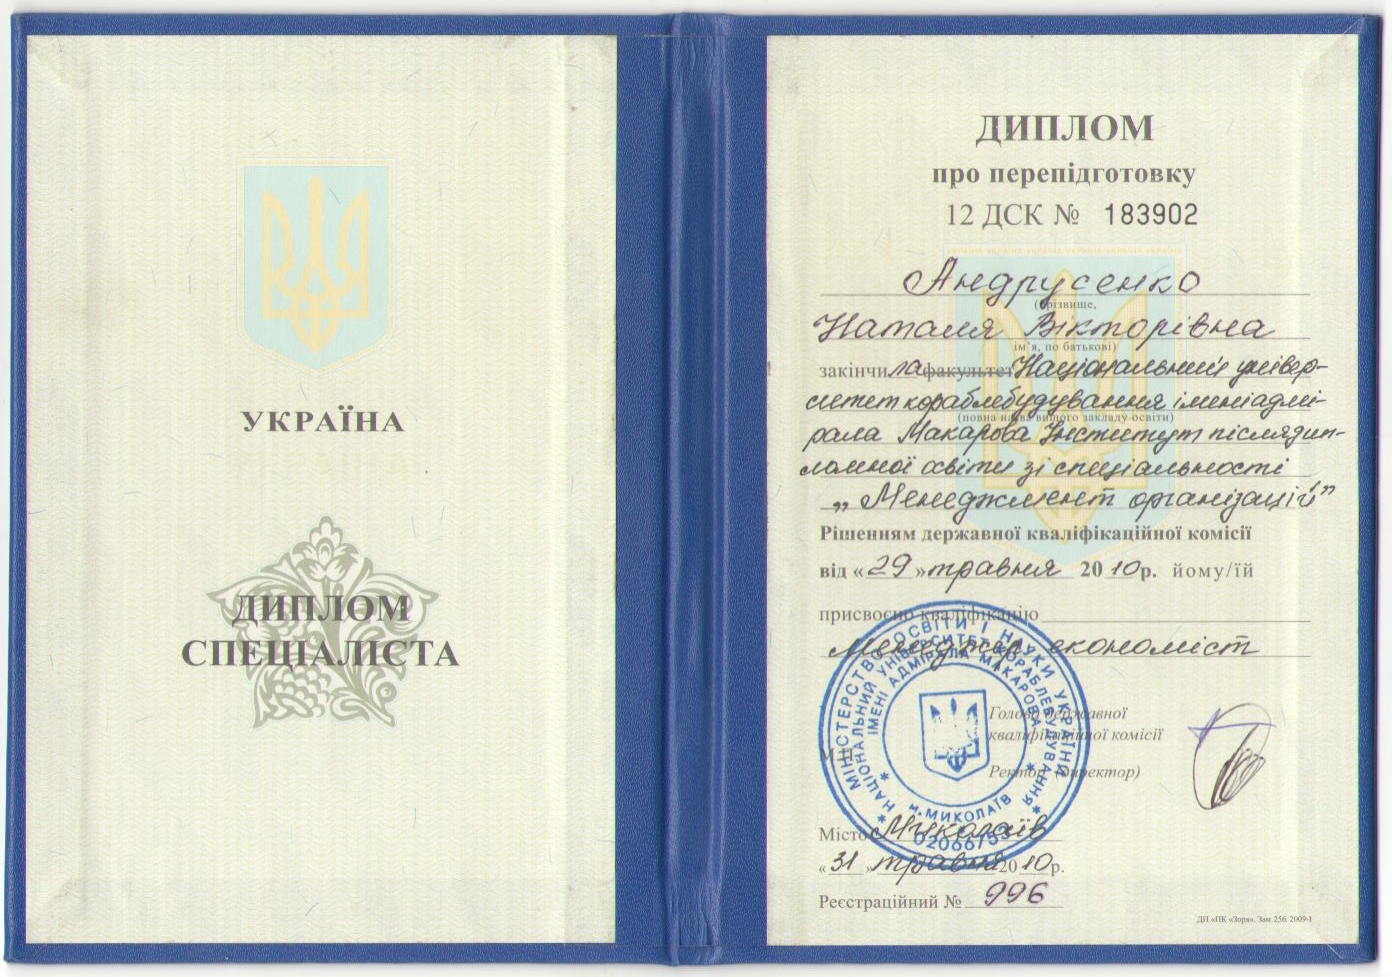 УКРАЇНА
ДИПЛОМ
СПЕЦІАЛІСТА
ДИПЛОМ
про перепідготовку
12 ДСК № 183902
Андрусенко
(прізвище,
Наталя Вікторівна
ім’я, по батькові)
закінчила факультет Національний універ-
ситет кораблебудування імені адмі-
(повна назва вищого закладу освіти)
рала Макарова Інститут післядип-
ломної освіти зі спеціальності
„Менеджмент організацій”
Рішенням державної кваліфікаційної комісії
від «29» травня 2010р. йому/їй
присвоєно кваліфікацію
Менеджер економіст
МІНІСТЕРСТВО ОСВІТИ І НАУКИ УКРАЇНИ
НАЦІОНАЛЬНИЙ УНІВЕРСИТЕТ КОРАБЛЕБУДУВАННЯ
ІМЕНІ АДМІРАЛА МАКАРОВА
м.МИКОЛАЇВ
02066753
Голова державної
кваліфікаційної комісії
М.П.
Ректор (директор)
Місто Миколаїв
«31» травня 2010р.
Реєстраційний № 996
ДП «ПК «Зоря». Зам. 256. 2009-I